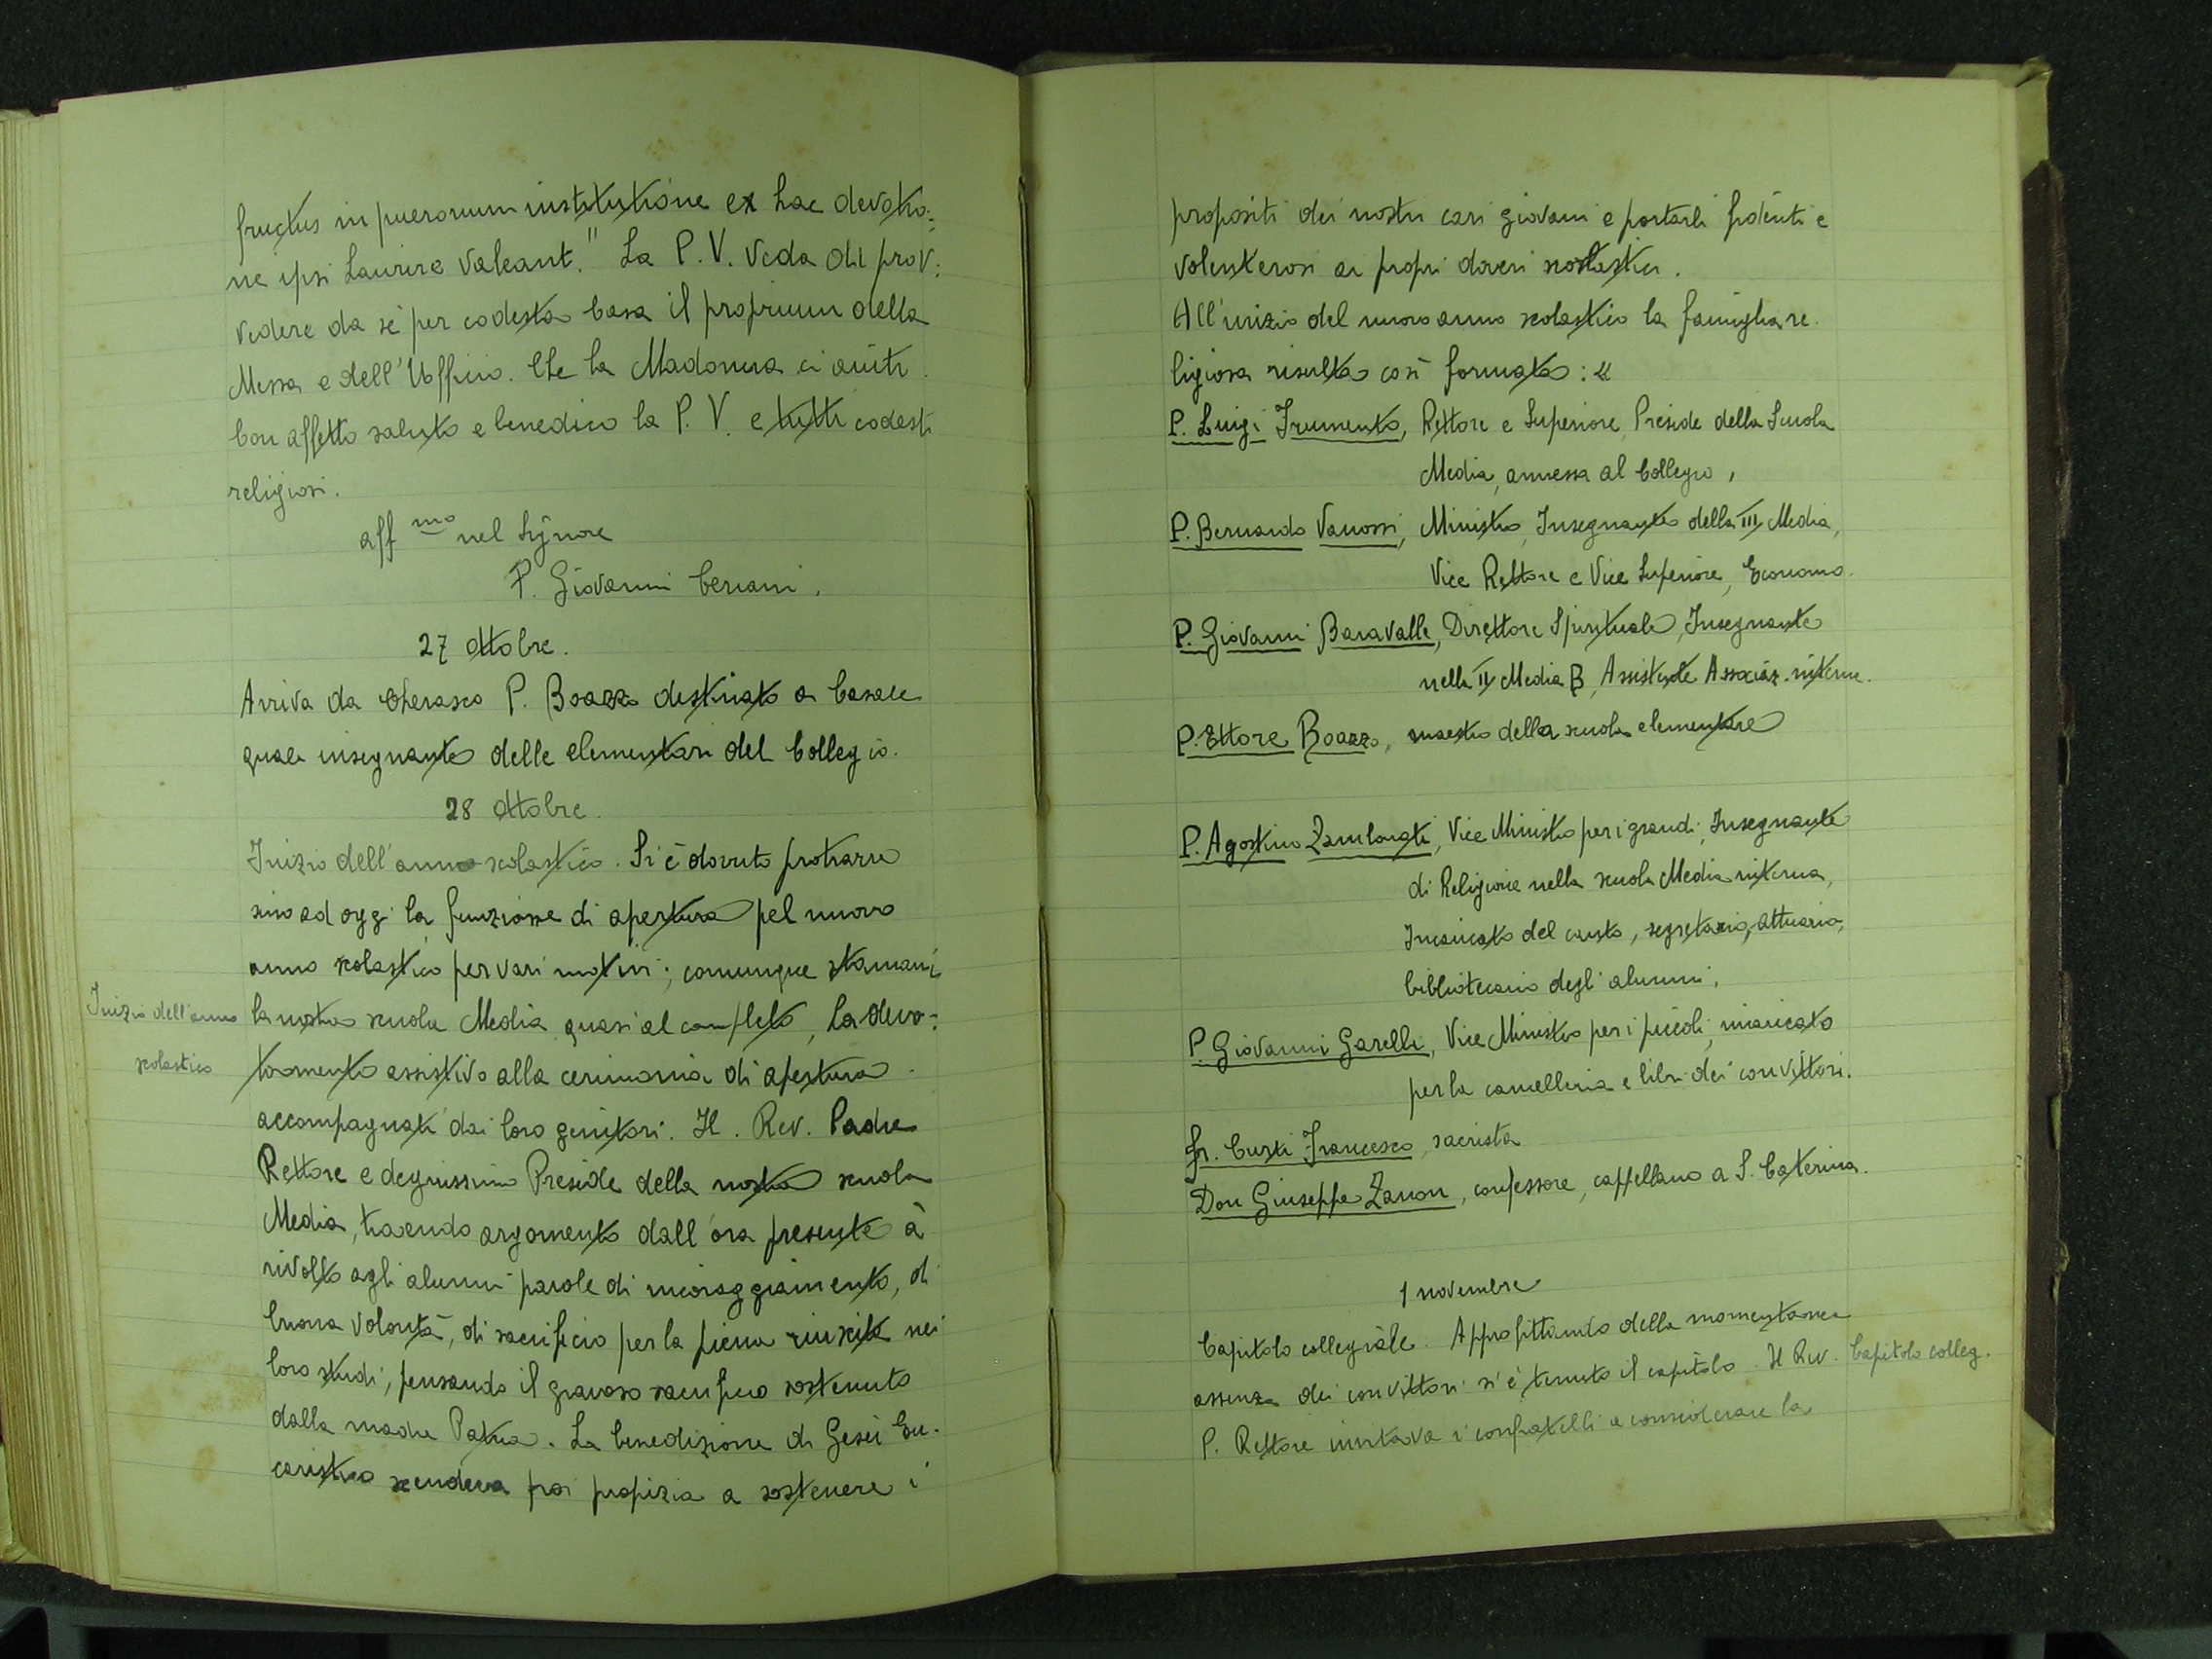 fructus in puerorum institutione ex hac devotio=
ne ipsi haurire valeant." La P. V. veda di prov=
vedere da sé per codesta Casa il proprium della
Messa e dell'Ufficio. Che la Madonna ci aiuti.
Con affetto saluto e benedico la P. V. e tutti codesti
religiosi.
aff mo nel Signore
P. Giovanni Ceriani.
27 Ottobre.
Arriva da Cherasco P. Boazzo destinato a Casale
quale insegnante delle elementari del Collegio.
28 Ottobre.
Inizio dell'anno scolastico. Si è dovuto protrarre
sino ad oggi la funzione di apertura pel nuovo
anno scolastico per vari motivi; comunque stamani
Inizio dell'anno
scolastico
la nostra scuola Media quasi al completo, ha devo=
tamente assistito alla cerimonia di apertura
accompagnati dai loro genitori. Il Rev. Padre
Rettore e degnissimo Preside della nostra scuola
Media, traendo argomento dall'ora presente à
rivolto agli alunni parole di incoraggiamento, di
buona volontà, di sacrificio per la piena riuscita nei
loro studi, pensando il gravoso sacrificio sostenuto
dalla madre Patria. La benedizione di Gesù Eu-
caristico scendeva poi propizia a sostenere i
propositi dei nostri cari giovani e portarli fidenti e
volenterosi ai propri doveri scolastici.
All'inizio del nuovo anno scolastico la famiglia re-
ligiosa risulta così formata: «
P. Luigi Frumento, Rettore e Superiore, Preside della Scuola
Media, annessa al Collegio,
P. Bernardo Vanossi, Ministro, Insegnante della III Media,
Vice Rettore e Vice Superiore, Economo.
P. Giovanni Baravalle, Direttore Spirituale, Insegnante
nella II Media B, Assistente Associaz. interne.
P. Ettore Boazzo, maestro della scuola elementare
P. Agostino Zambonati, Vice Ministro per i grandi, Insegnante
di Religione nella scuola Media interna,
Incaricato del culto, segretario, attuario,
bibliotecario degli alunni,
P. Giovanni Garelli, Vice Ministro per i piccoli, incaricato
per la cancelleria e libri dei convittori.
Fr. Curti Francesco, sacrista
Don Giuseppe Zanon, confessore, cappellano a S. Caterina.
1 novembre
Capitolo collegiale. Approfittando della momentanea
assenza dei convittori si è tenuto il capitolo. Il Rev.
Capitolo colleg.
P. Rettore invitava i confratelli a considerare la